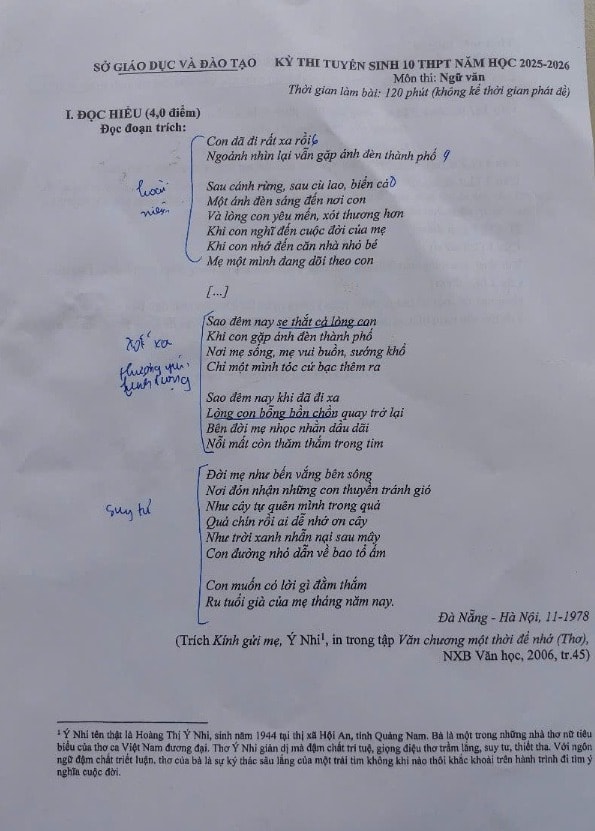 SỞ GIÁO DỤC VÀ ĐÀO TẠO KỲ THI TUYỂN SINH 10 THPT NĂM HỌC 2025-2026
Môn thi: Ngữ văn
Thời gian làm bài: 120 phút (không kể thời gian phát đề)
I. ĐỌC HIỂU (4,0 điểm)
Đọc đoạn trích:
Con đã đi rất xa rồi
Ngoảnh nhìn lại vẫn gặp ánh đèn thành phố
Sau cánh rừng, sau cù lao, biển cả
Một ánh đèn sáng đến nơi con
hoài
Và lòng con yêu mến, xót thương hơn
niệm
Khi con nghĩ đến cuộc đời của mẹ
Khi con nhớ đến căn nhà nhỏ bé
Mẹ một mình đang dõi theo con
[...]
Sao đêm nay se thắt cả lòng con
Khi con gặp ánh đèn thành phố
xót xa
Nơi mẹ sống, mẹ vui buồn, sướng khổ
Chỉ một mình tóc cứ bạc thêm ra
Sao đêm nay khi đã đi xa
Lòng con bỗng bồn chồn quay trở lại
Bên đời mẹ nhọc nhằn dầu dãi
Nỗi mất còn thăm thẳm trong tim
Đời mẹ như bến vắng bên sông
Nơi đón nhận những con thuyền tránh gió
suy tư
Như cây tự quên mình trong quả
Quả chín rồi ai dễ nhớ ơn cây
Như trời xanh nhẫn nại sau mây
Con đường nhỏ dẫn về bao tổ ấm
Con muốn có lời gì đằm thắm
Ru tuổi già của mẹ tháng năm nay.
Đà Nẵng - Hà Nội, 11-1978
(Trích Kính gửi mẹ, Ý Nhi¹, in trong tập Văn chương một thời để nhớ (Thơ),
NXB Văn học, 2006, tr.45)
¹ Ý Nhi tên thật là Hoàng Thị Ý Nhi, sinh năm 1944 tại thị xã Hội An, tỉnh Quảng Nam. Bà là một trong những nhà thơ nữ tiêu
biểu của thơ ca Việt Nam đương đại. Thơ Ý Nhi giản dị mà đậm chất trí tuệ, giọng điệu thơ trầm lắng, suy tư, thiết tha. Với ngôn
ngữ đậm chất triết luận, thơ của bà là sự ký thác sâu lắng của một trái tim không khi nào thôi khắc khoải trên hành trình đi tìm ý
nghĩa cuộc đời.